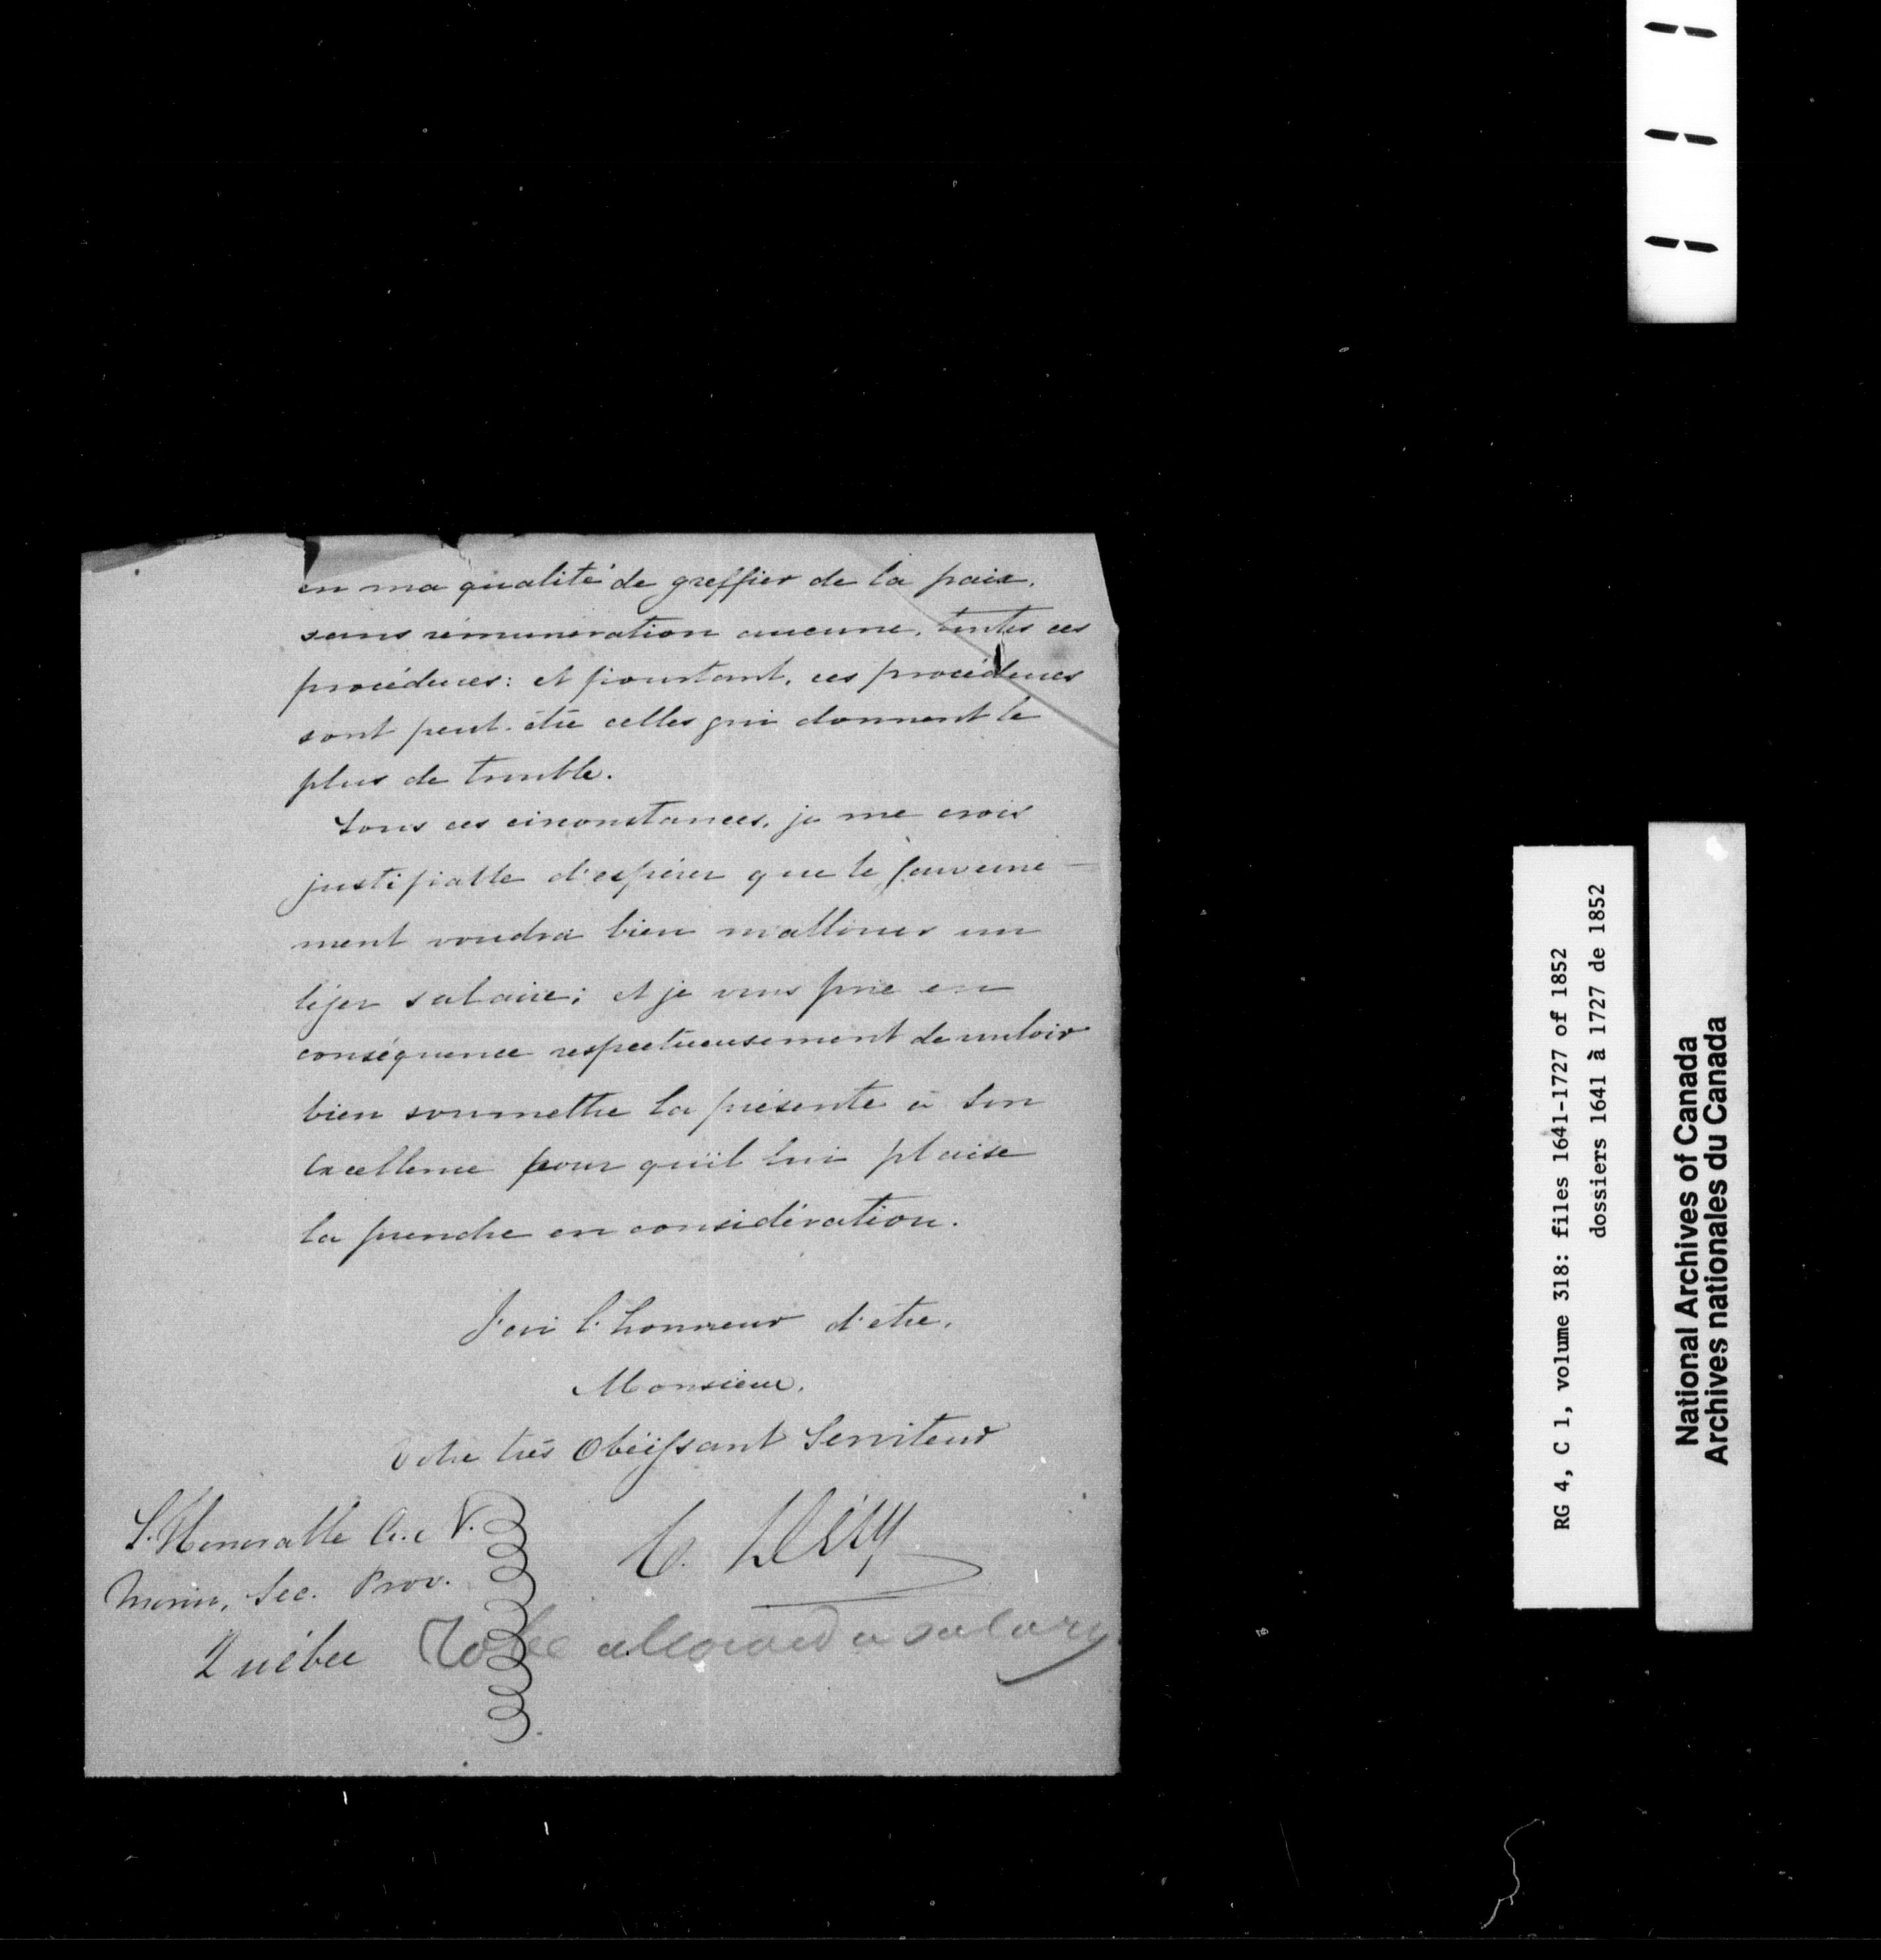 en ma qualité de greffier de la paix,
sans rémuneration aucune, toutes ces
procédures: et pourtant, ces procédures
sont peut-être celles qui donnent le
plus de trouble.
Sous ces circonstances, je me crois
justifiable d'espérer que le Gouverne-
ment voudra bien m'allouer un
léger salaire; et je vous prie en
conséquence respectueusement de vouloir
bien soumettre la présente à Son
Excellence pour qu'il lui plaise
la prendre en considération.
J'ai l'honneur d'être,
Monsieur,
Votre très Obéissant Serviteur
L'Honorable A. N.
Morin, Sec. Prov.
Québec
C. Déry
To be allowed a salary
RG 4, C 1, volume 318: files 1641-1727 of 1852
dossiers 1641 à 1727 de 1852
National Archives of Canada
Archives nationales du Canada